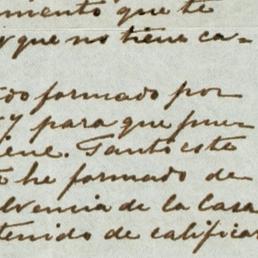 miento que te
que no tiene ca-
formado por
y para que pue-
ene. Tanto este
he formado de
lvencia de la Casa
tenido de calificar